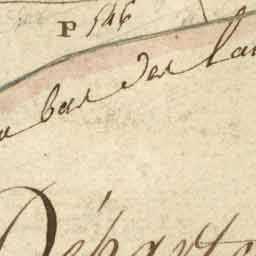 P 546
bas des
Départe